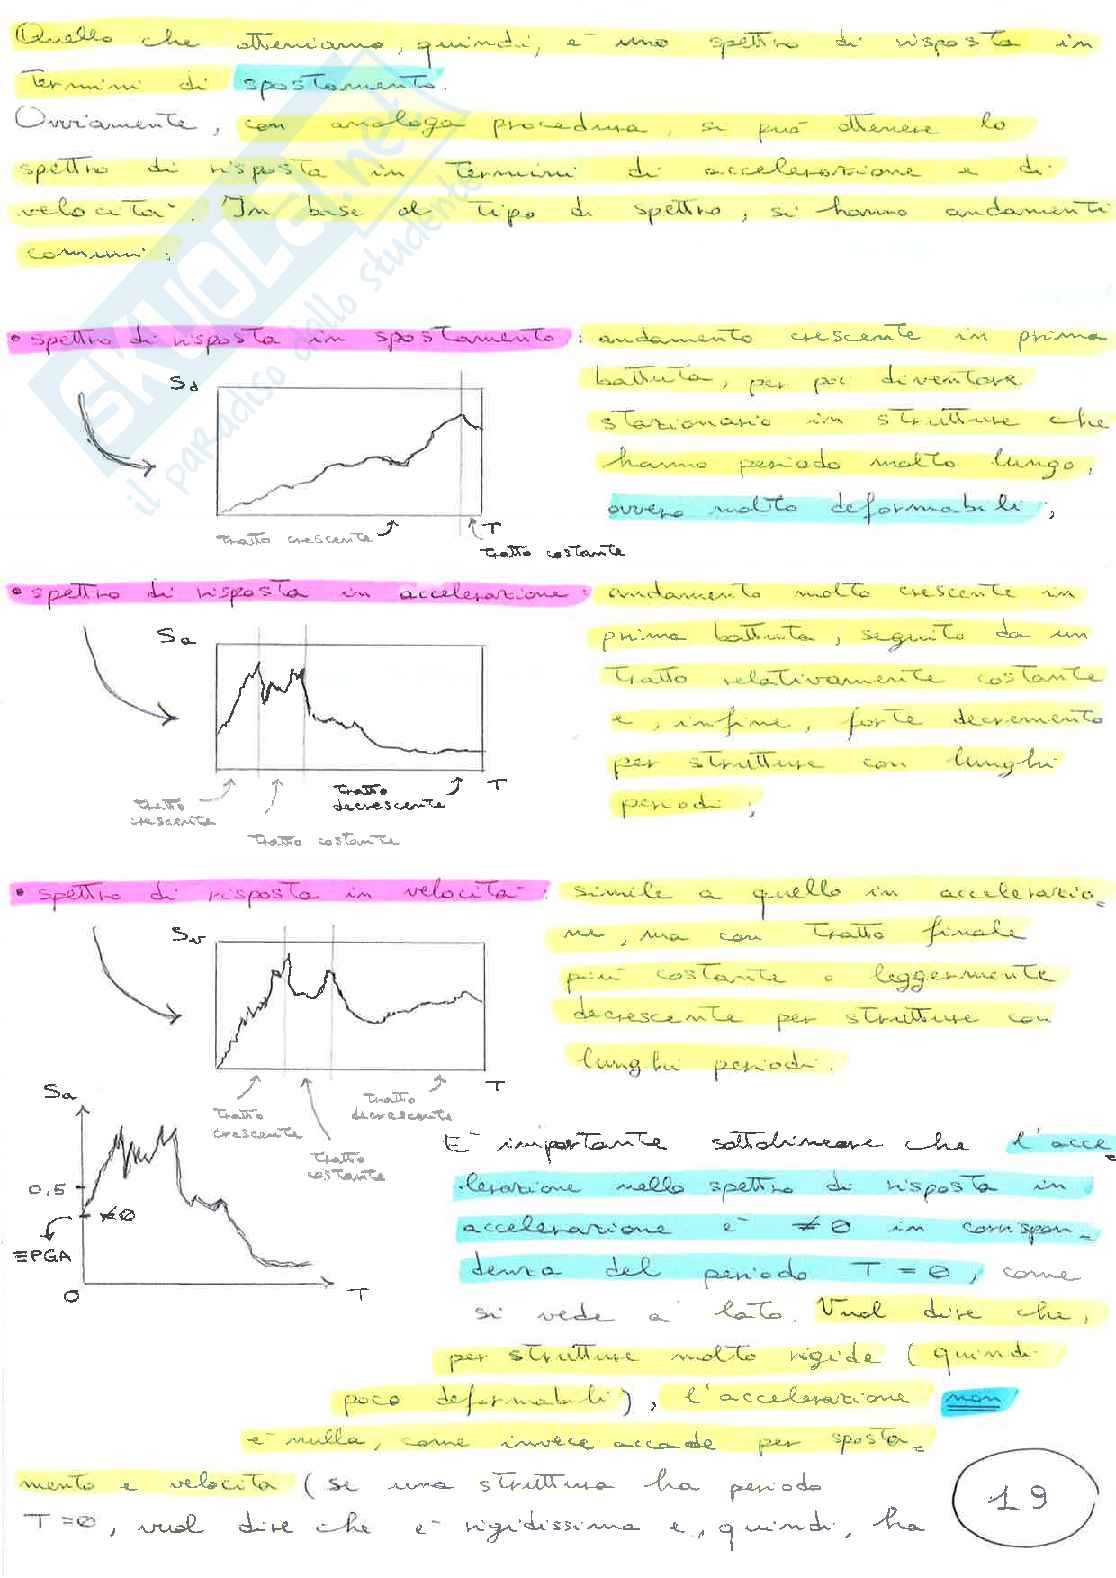 Quello che otteniamo, quindi, è uno spettro di risposta in
termini di spostamento.
Ovviamente, con analoga procedura, si può ottenere lo
spettro di risposta in termini di accelerazione e di
velocità. In base al tipo di spettro, si hanno andamenti
comuni:
• spettro di risposta in spostamento: andamento crescente in prima
battuta, per poi diventare
stazionario in strutture che
hanno periodo molto lungo,
ovvero molto deformabili;
Sd
T
tratto crescente
tratto costante
• spettro di risposta in accelerazione: andamento molto crescente in
prima battuta, seguito da un
tratto relativamente costante
e, infine, forte decremento
per strutture con lunghi
periodi;
Sa
T
tratto
crescente
tratto costante
tratto
decrescente
• spettro di risposta in velocità: simile a quello in accelerazio=
ne, ma con tratto finale
più costante o leggermente
decrescente per strutture con
lunghi periodi.
Sv
T
tratto
crescente
tratto
costante
tratto
decrescente
Sa
0,5
≠0
≡PGA
0
T
E' importante sottolineare che l'acce=
lerazione nello spettro di risposta in
accelerazione è ≠0 in corrispon=
denza del periodo T=0, come
si vede a lato. Vuol dire che,
per strutture molto rigide (quindi
poco deformabili), l'accelerazione non
è nulla, come invece accade per sposta=
mento e velocità (se una struttura ha periodo
T=0, vuol dire che è rigidissima e, quindi, ha
19
SKUOLA.net
il paradiso dello studente